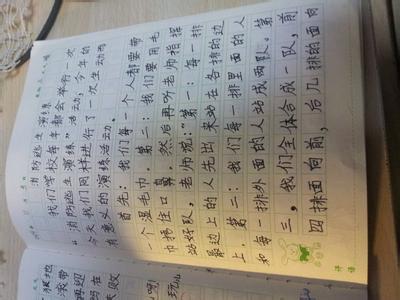 消防逃生演练
我们学校每年都会举行一次
“消防逃生演练”活动，今年的
今天我们同样进行了一次生动而
有意义的演练活动。
首先：我们每一个人都要带
一个湿毛巾。第二：我们要用毛
巾捂住口鼻，然后再听老师指挥
站好队，老师说：“每一排
最边上的人先出来站在各排的边
上。第二：我们每一排里面的人
和每一排外面的人站成两队。第
三，我们全体合成一队，前
四排面向前，后几排的面向
评语
滚带
再迎
的在
失败